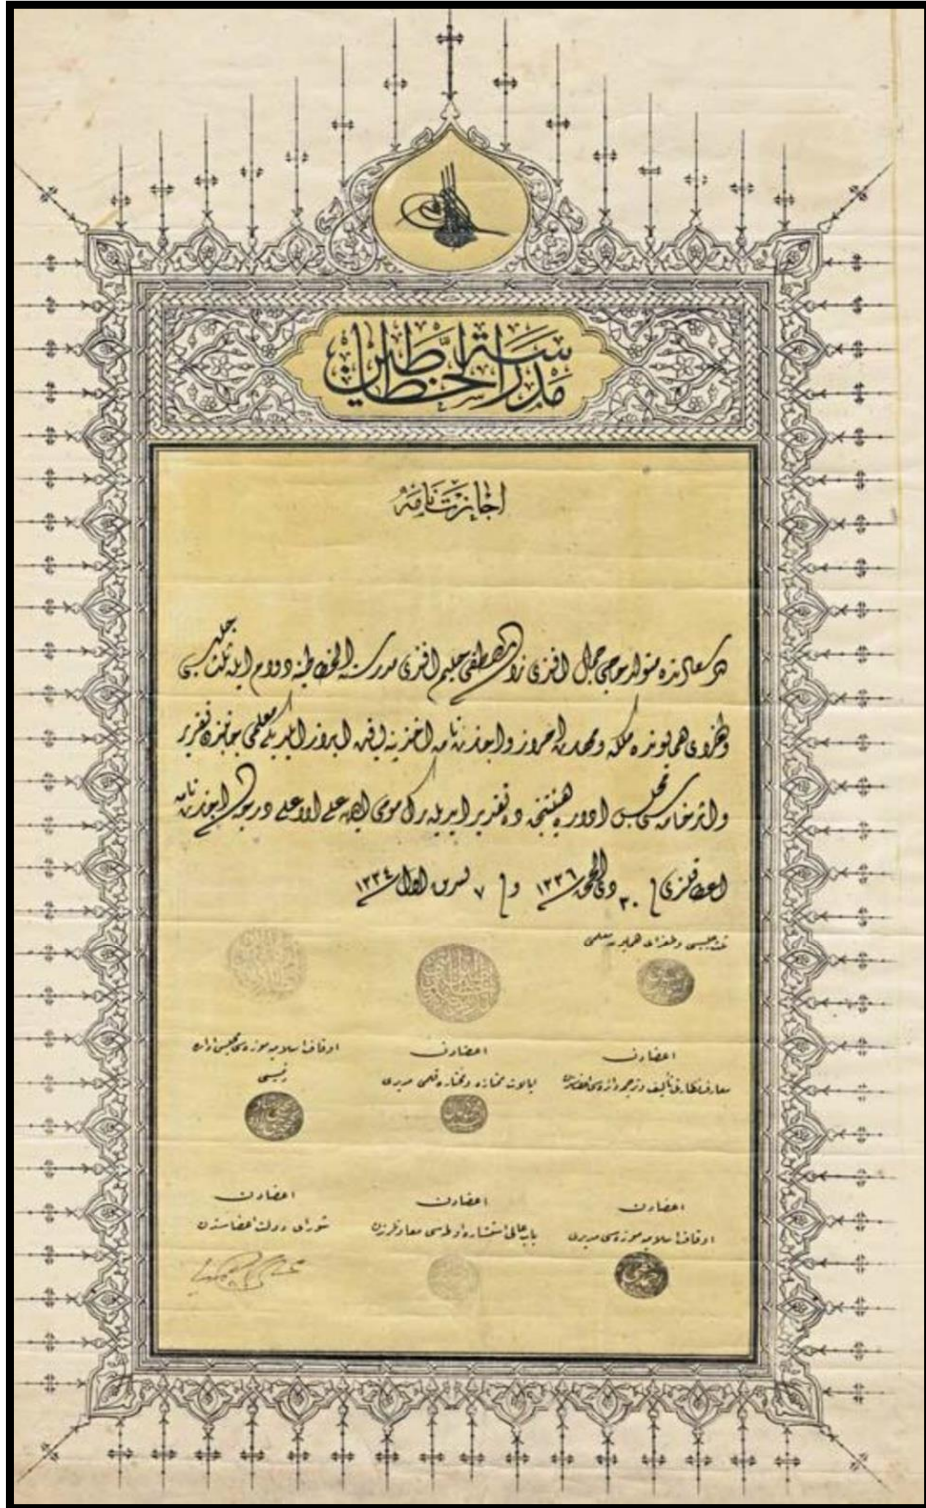 مدرسة الخطاطين
اجازتنامه
در سعادتده متولد حاجی جمال افندی زاده مصطفی حلیم افندی مدرسة الخطاطینه دوام ایله ثلث جلیسی
و طغرای همایونده ملکه و مهارت احراز و اجازتنامه اخذینه لیاقت ابراز ایلدیکی معلمی جانبندن تقریر
و اثر خامه‌سی مجلس اداره هیئتنجه ده تقدیر ایدیله‌رک مومی الیهه علی الاعلی درجه‌ده اجازتنامه
اعطا قلندی فی ٣٠ ذی الحجه سنه ١٣٣٦ و فی ٧ تشرین اول سنه ١٣٣٤
ثلث جلیسی و طغرای همایون معلمی
اعضادن
معارف نظارتی تألیف و ترجمه دائره‌سی
اعضادن
ایالات ممتازه و مختاره قلمی مدیری
اوقاف اسلامیه موزه‌سی مجلس اداره
رئیسی
اعضادن
اوقاف اسلامیه موزه‌سی مدیری
اعضادن
باب عالی استشاره اوطه‌سی معاونلرندن
اعضادن
شورای دولت اعضاسندن